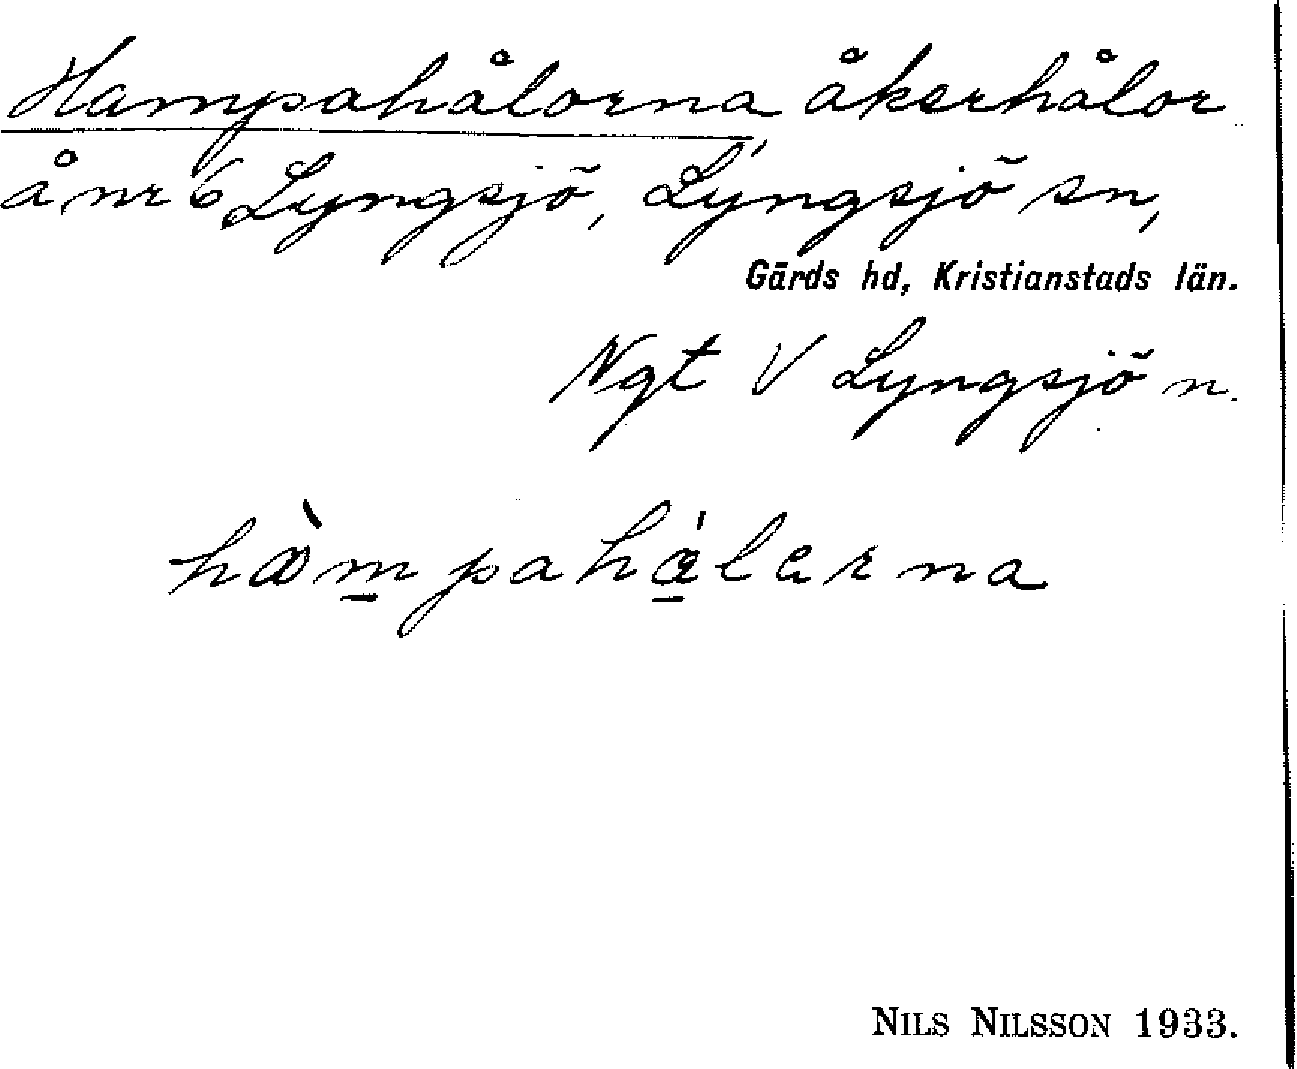 Hampahålorna, åkerhålor
å nr 6 Lyngsjö, Lyngsjö sn,
Gärds hd, Kristianstads län.
Ngt V Lyngsjö n.
hàmpahálarna
NILS NILSSON 1933.